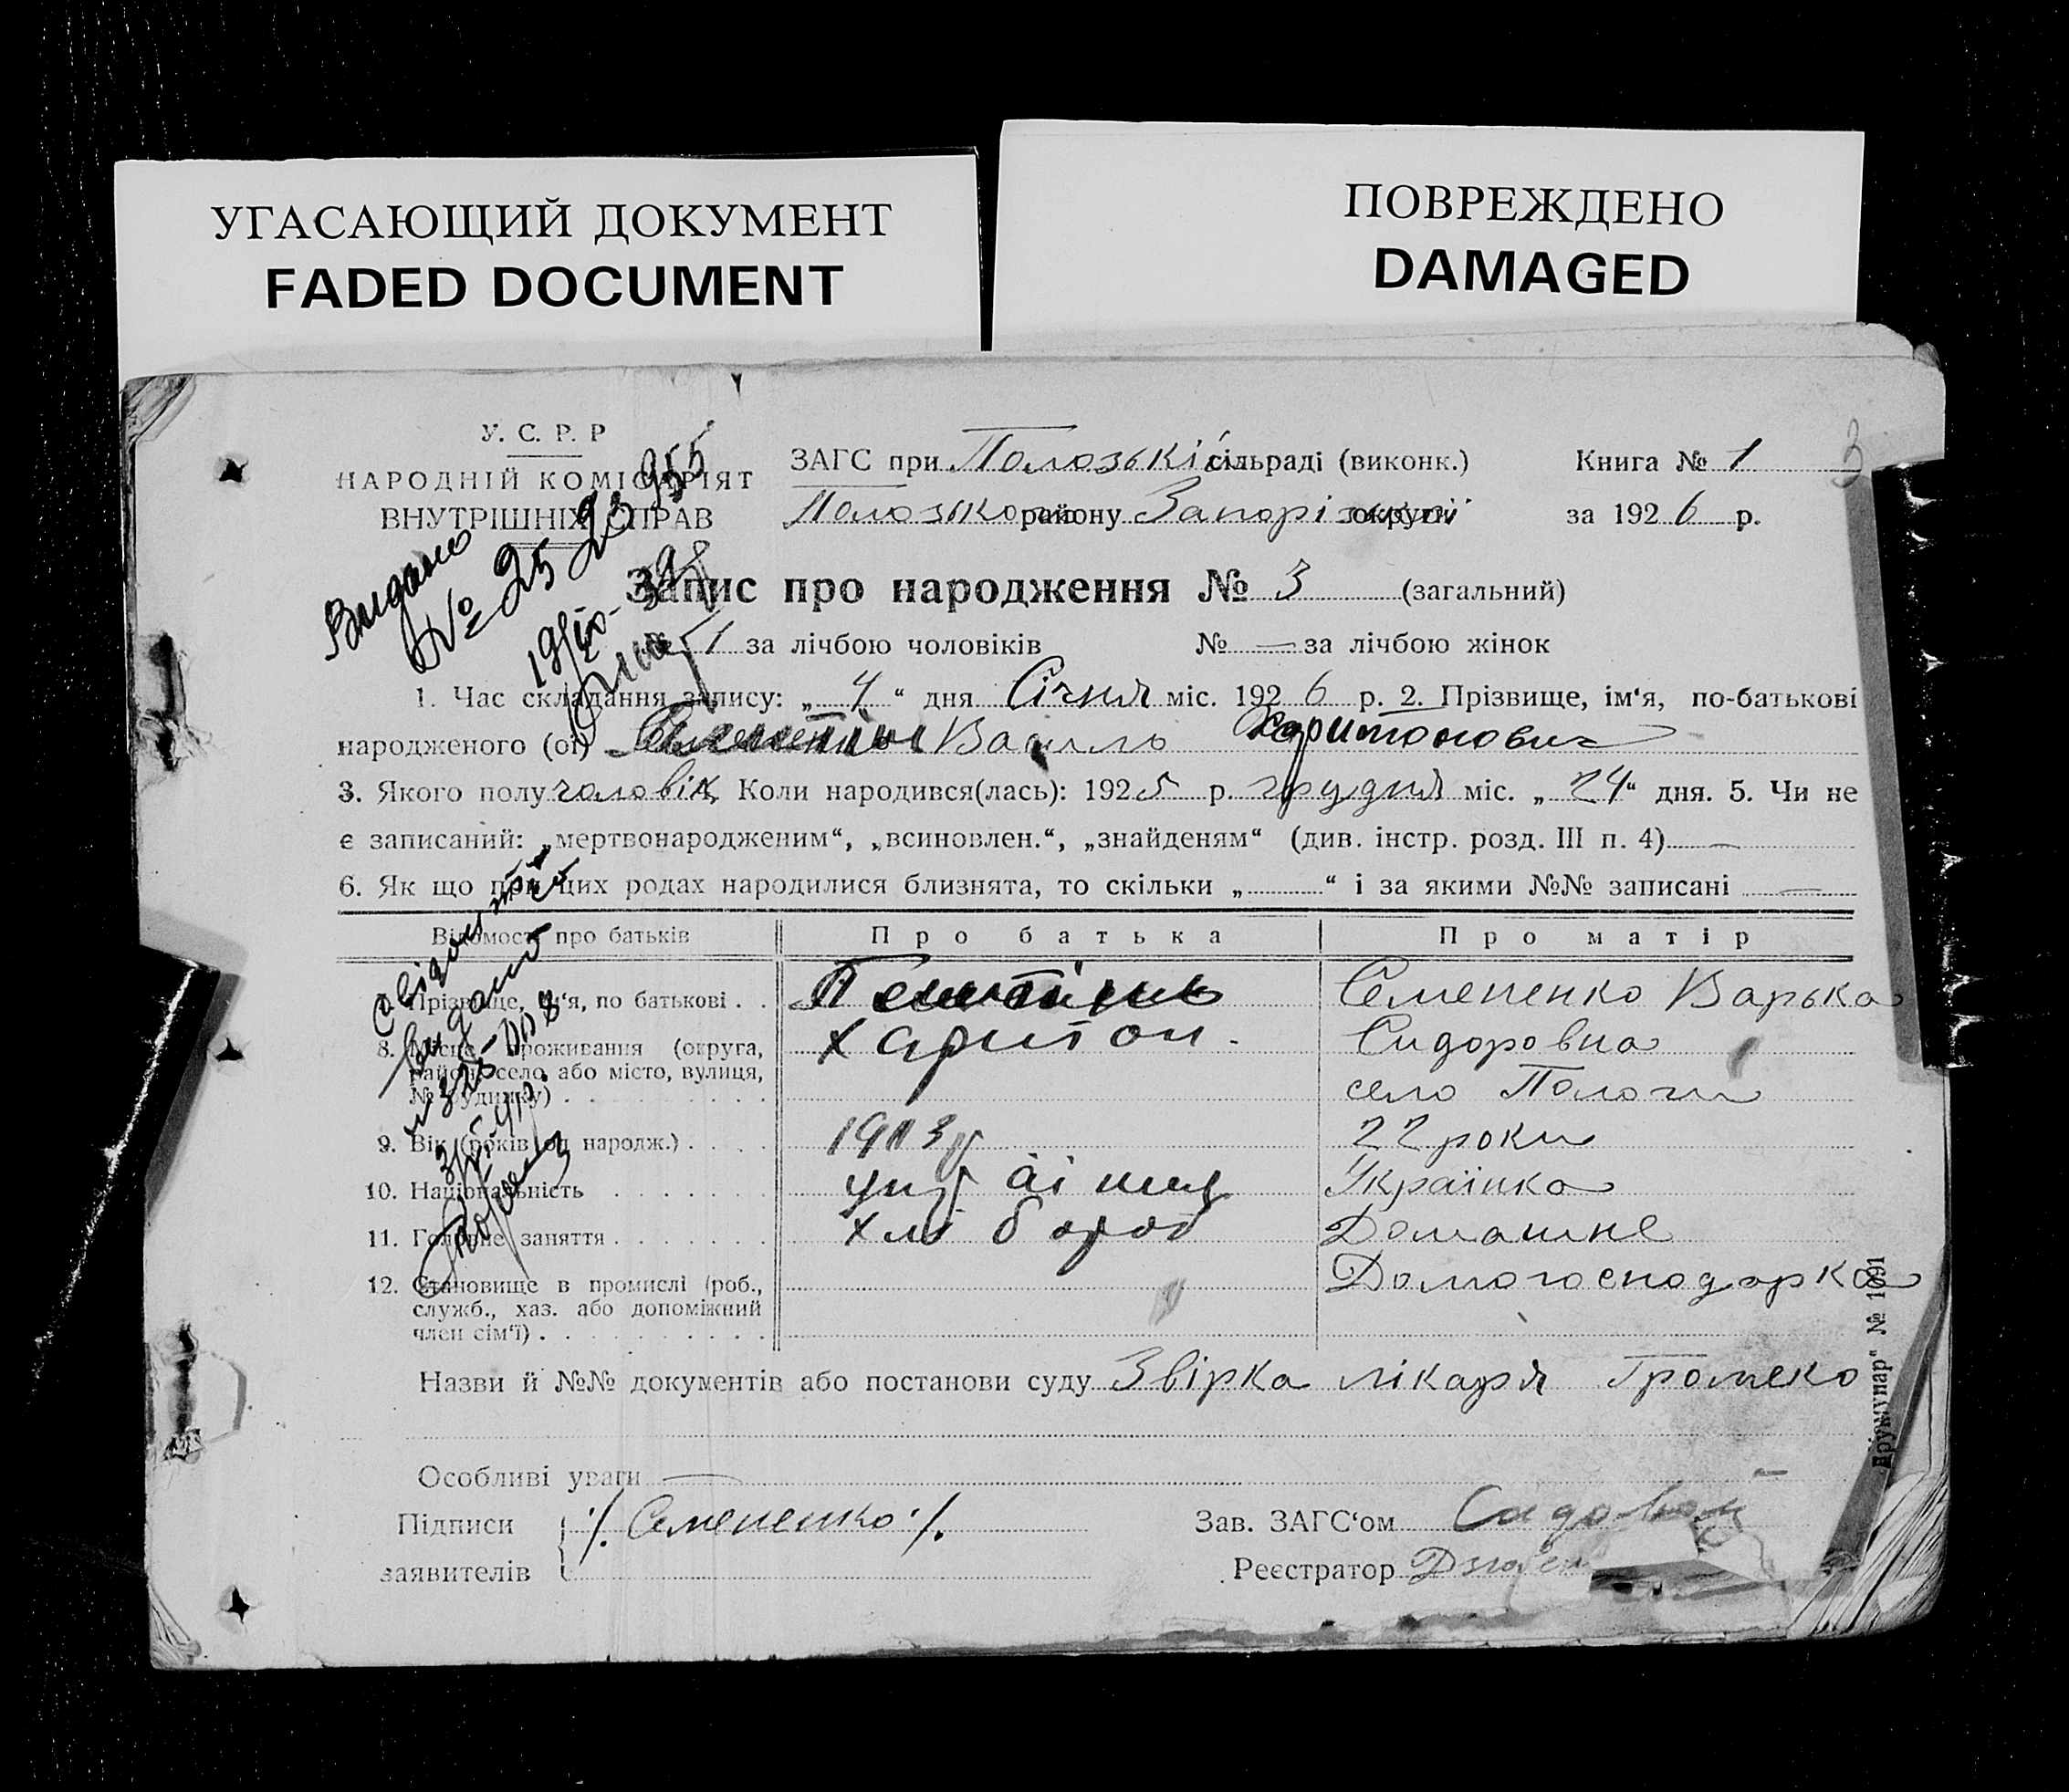 УГАСАЮЩИЙ ДОКУМЕНТ
FADED DOCUMENT
ПОВРЕЖДЕНО
DAMAGED
3
У. С. Р. Р
НАРОДНІЙ КОМІСАРІЯТ
ВНУТРІШНІХ СПРАВ
ЗАГС при Полозькій сільраді (виконк.) Книга № 1
Полозького району Запорізької округи за 1926 р.
Видано
№ 25
Запис про народження № 3 (загальний)
№ 1 за лічбою чоловіків № — за лічбою жінок
1. Час складання запису: „4“ дня Січня міс. 1926 р. 2. Прізвище, ім‘я, по-батькові
народженого (ої) Василь Харитонович
3. Якого полу чоловік Коли народився(лась): 1925 р. грудня міс. „24“ дня. 5. Чи не
є записаний: „мертвонародженим“, „всиновлен.“, „знайденям“ (див. інстр. розд. III п. 4) —
6. Як що при цих родах народилися близнята, то скільки „ “ і за якими №№ записані —
Відомості про батьків Про батька Про матір
Прізвище, ім‘я, по батькові . . Семененко Варька
8. Місце проживання (округа, Харитон Сидоровна
район, село або місто, вулиця,
№ будинку) село Пологи
9. Вік (років од народж.) 22 роки
10. Національність Українка
11. Головне заняття хлібороб Домашнє
12. Становище в промислі (роб., Домогосподарка
служб., хаз. або допоміжний
член сім‘ї)
Видано
Назви й №№ документів або постанови суду Звірка лікаря Громеко
Особливі уваги —
Підписи ./. Семененко ./. Зав. ЗАГС‘ом
заявителів Реєстратор
№ 1091